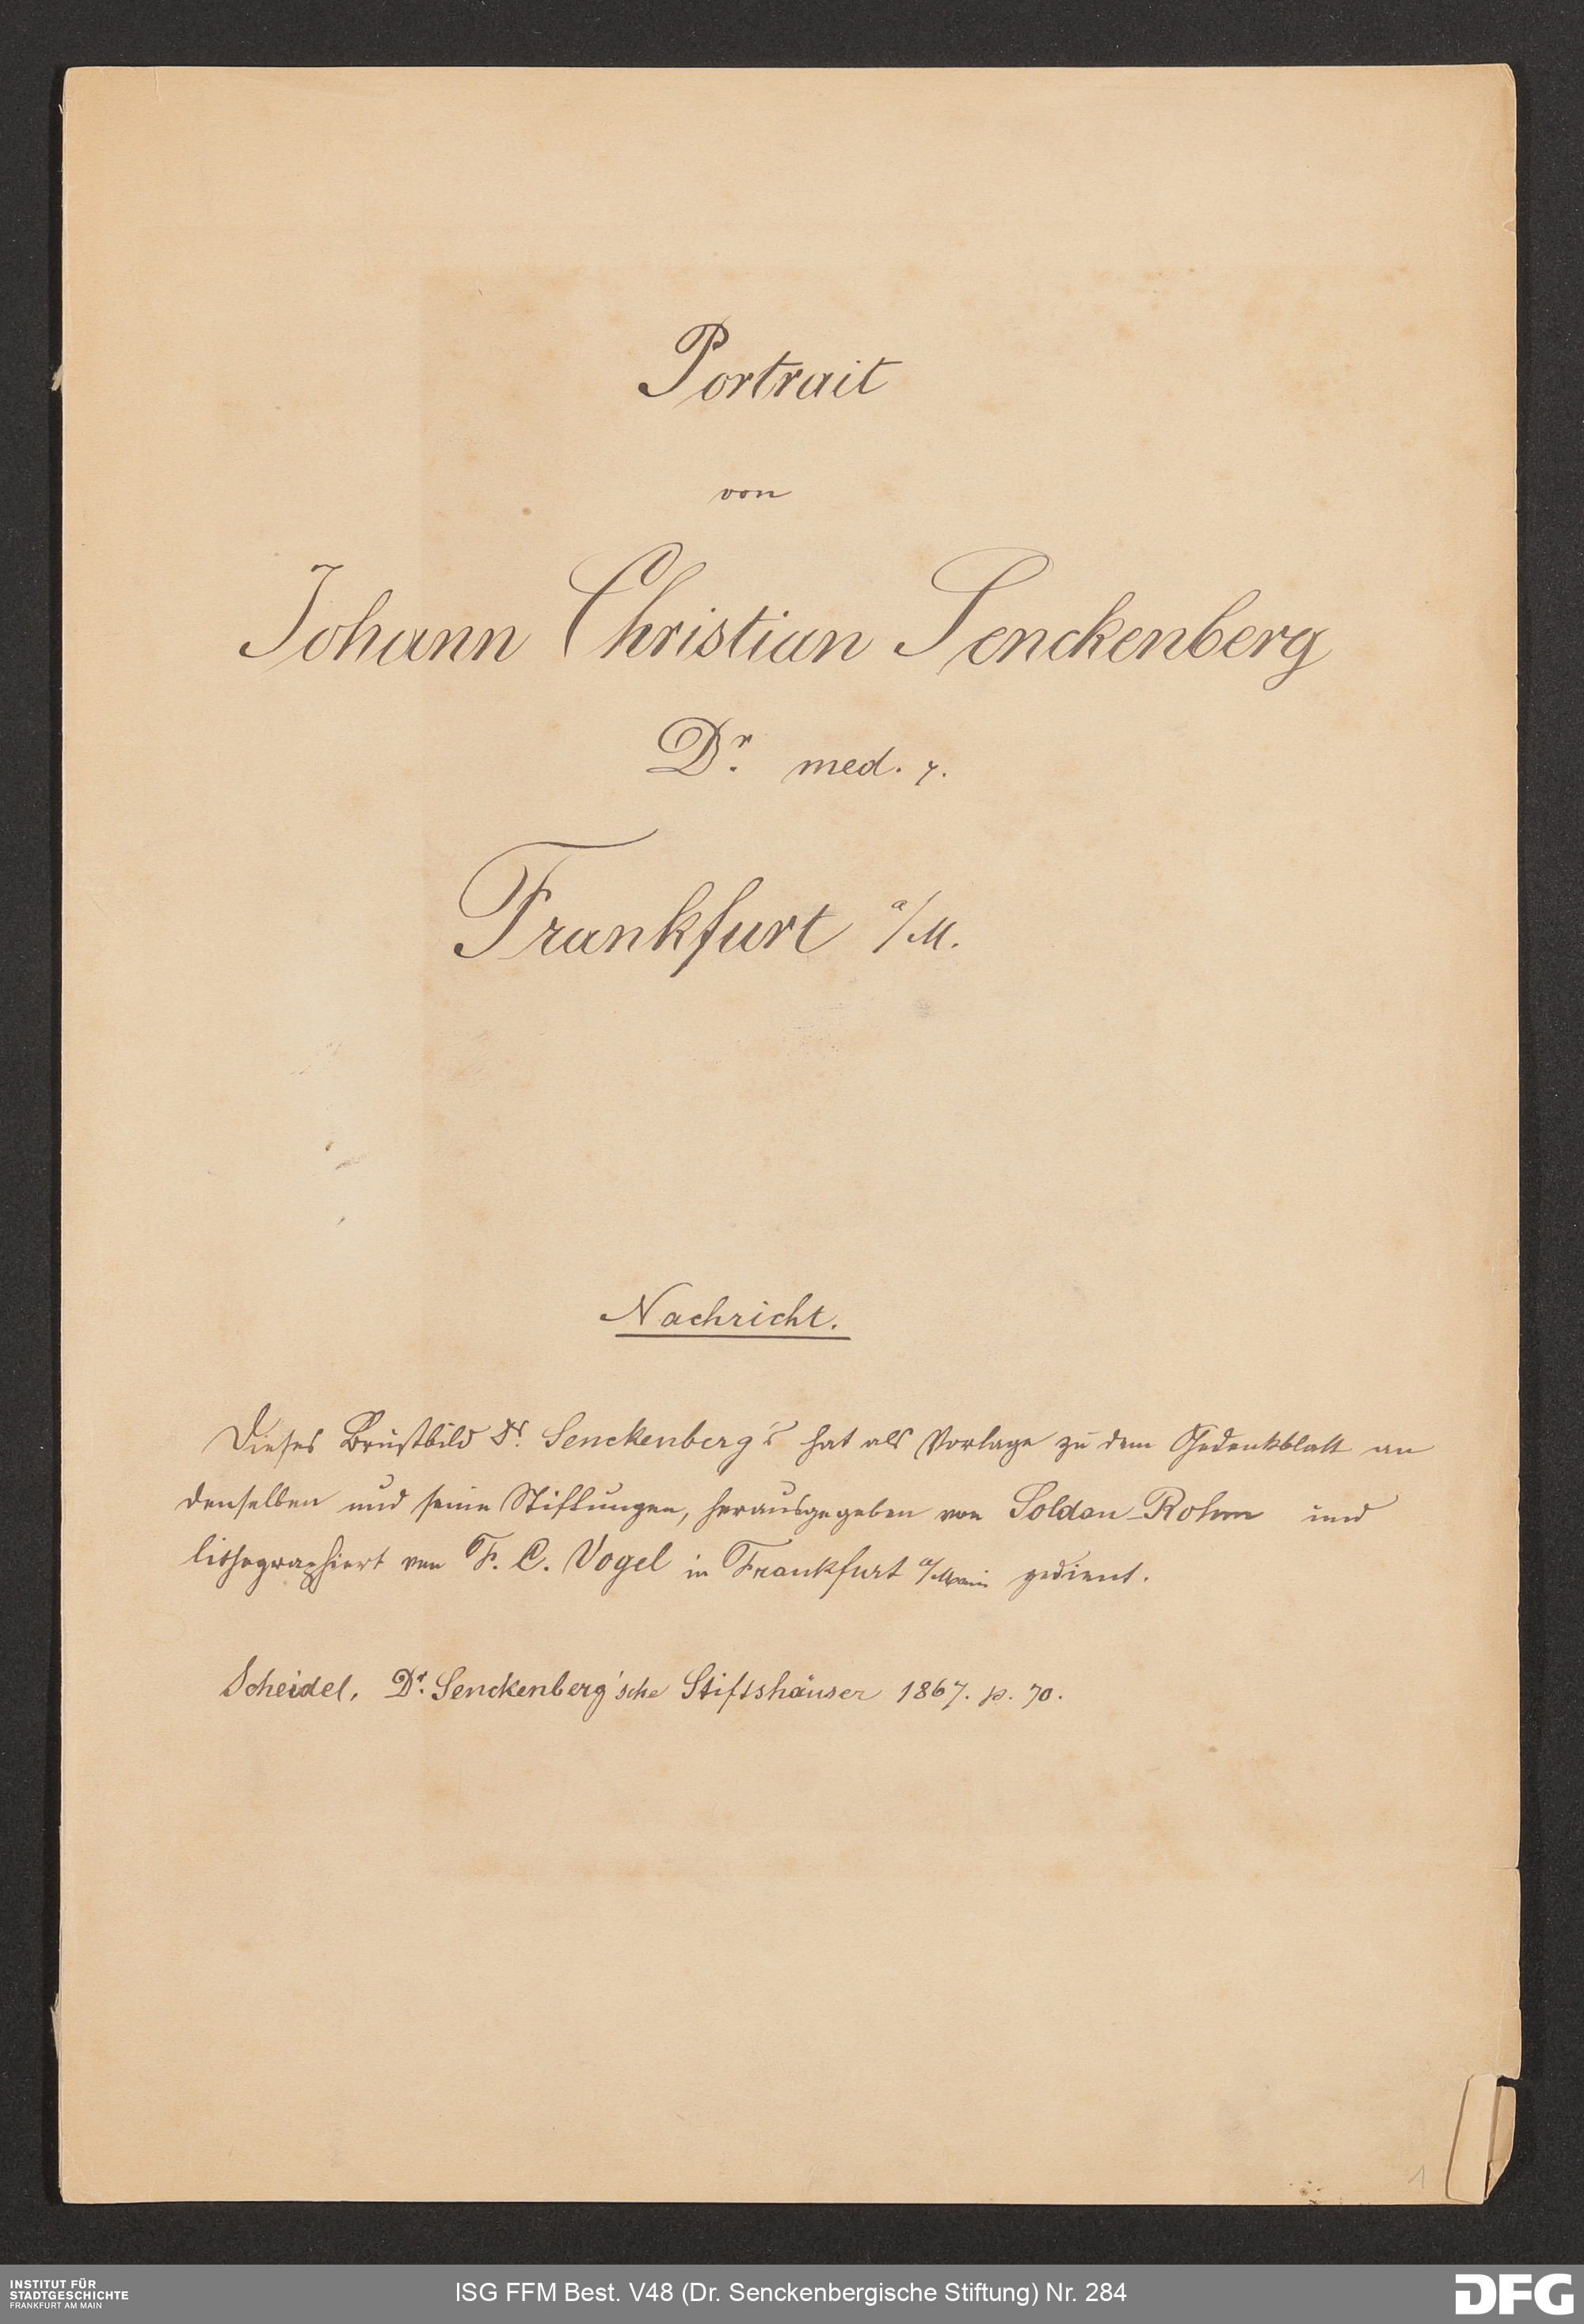 Portrait
von
Johann Christian Senckenberg
Dr. med. z.
Frankfurt a/M.
Nachricht.
Dieses Brustbild Dr. Senckenberg's hat als Vorlage zu dem Gedenkblatt an
denselben und seine Stiftungen, herausgegeben von Soldan-Rohm und
lithographiert von F. C. Vogel in Frankfurt a/Main gedient.
Scheidel, Dr. Senckenberg'sche Stiftshäuser 1867. p. 70.
1
INSTITUT FÜR
STADTGESCHICHTE
FRANKFURT AM MAIN
ISG FFM Best. V48 (Dr. Senckenbergische Stiftung) Nr. 284
DFG